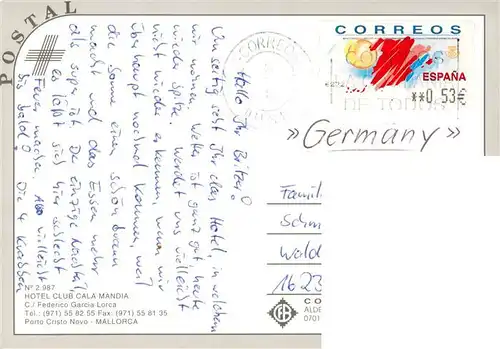 POSTAL
CORREOS
CORREOS
ESPAÑA
**0,53€
DE TODOS
» Germany »
Hallo Ihr Britzer!
Umseitig seht Ihr das Hotel, in welchem
wir wohnen. Wetter ist ganz gut heute
wieder Spitze. Werdet uns vielleicht
nicht wieder erkennen, wenn wir
überhaupt nochmal kommen, weil
die Sonne einen schön braun
macht und das Essen mehr
als super ist. Der einzige Nachteil,
es läßt sich hier schlecht
Feuer machen. Also vielleicht
bis bald?
Die 4 Knabben
Famil
Schm
Wald
1623
Nº 2.987
HOTEL CLUB CALA MANDIA
C./ Federico Garcia Lorca
Tel.: (971) 55 82 55 Fax: (971) 55 81 35
Porto Cristo Novo - MALLORCA
CO
ALDE
0701